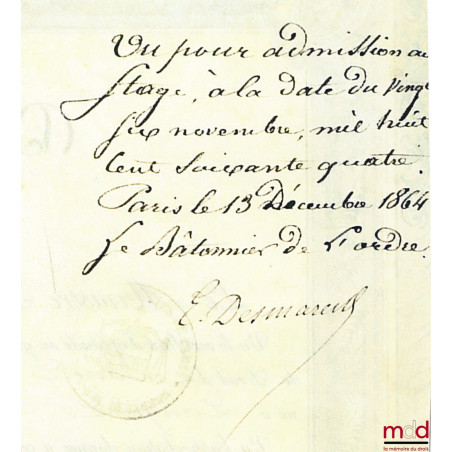 Vu pour admission au
Stage, à la date du vingt
six novembre, mil huit
cent soixante quatre.
Paris le 13 Décembre 1864
Le Bâtonnier de l'ordre.
E. Desmarest
mdd
la mémoire du droit